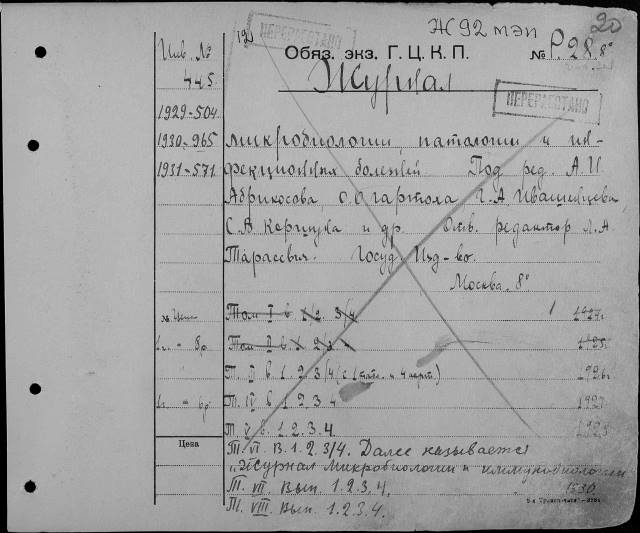 Ж 92 мэп
20
ПЕРЕРАБОТАНО
192
Инв. №
Обяз. экз. Г. Ц. К. П. № P. 28. 8°
445
Журнал
ПЕРЕРАБОТАНО
1929-504
1930-965 микробиологии, патологии и ин-
1931-571 фекционных болезней Под ред. А.И
Абрикосова, Г.А Ивашенцева,
С.В Коршуна и др. Отв. редактор Л.А
Тарасевич. Госуд. Изд-во.
Москва. 8°
Том I в 1/2. 3/4
Том II в. 1 2/3 4 1925.
Т. III в 1. 2. 3/4 1926.
Т. IV в 1. 2. 3 4 1927
Т. V в. 1. 2. 3. 4. 1928
Цена
Т. VI. В. 1. 2. 3/4. Далее называется
"Журнал микробиологии и иммунобиологии
Т. VII. Вып. 1. 2. 3. 4. 1930
Т. VIII. Вып. 1. 2. 3. 4.